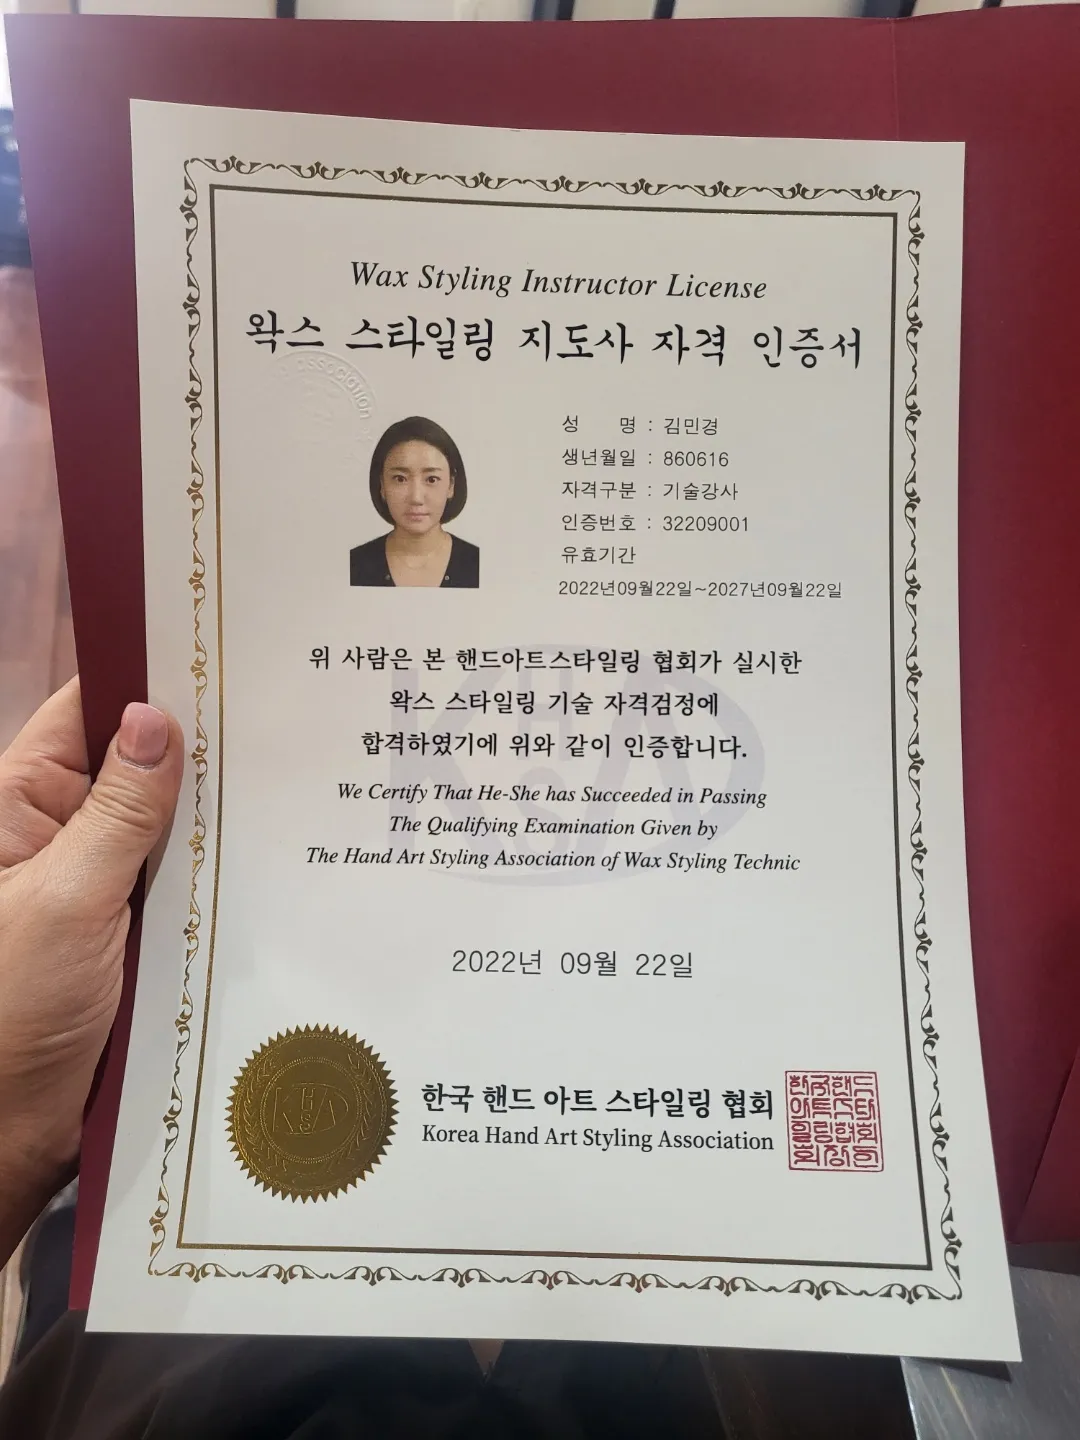 Wax Styling Instructor License
왁스 스타일링 지도사 자격 인증서
association
성 명 : 김민경
생년월일 : 860616
자격구분 : 기술강사
인증번호 : 32209001
유효기간
2022년09월22일~2027년09월22일
위 사람은 본 핸드아트스타일링 협회가 실시한
왁스 스타일링 기술 자격검정에
합격하였기에 위와 같이 인증합니다.
We Certify That He-She has Succeeded in Passing
The Qualifying Examination Given by
The Hand Art Styling Association of Wax Styling Technic
2022년 09월 22일
한국 핸드 아트 스타일링 협회
Korea Hand Art Styling Association